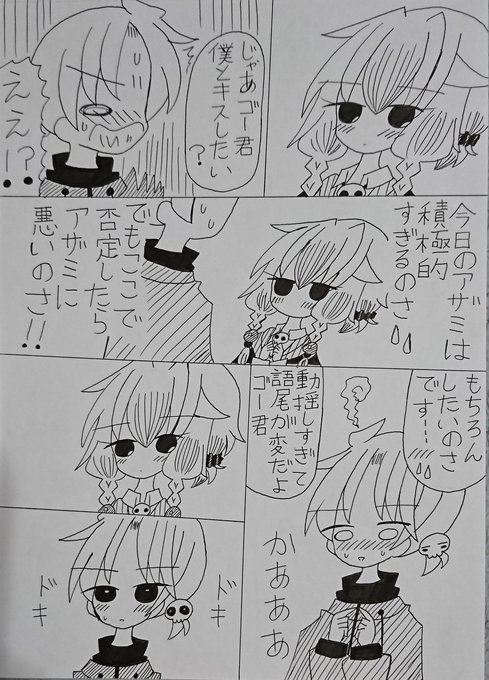 じゃあゴー君
僕とキスしたい
?
ええー!?
今日のアザミは
積極的
すぎるのさ
でもここで
否定したら
アザミに
悪いのさ!!
もちろん
したいのさ
です…
動揺しすぎて
語尾が変だよ
ゴー君
かあああ
ドキ
ドキ